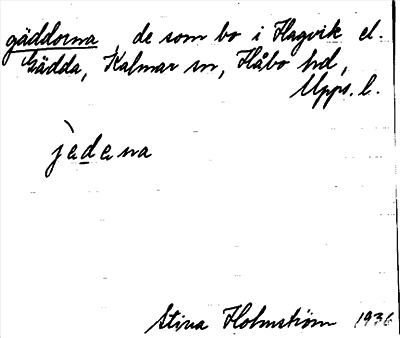 gäddorna, de som bo i Hagvik el.
Gädda, Kalmar sn, Håbo hd,
Upps. l.
j̀ede̱na
Stina Holmström 1936